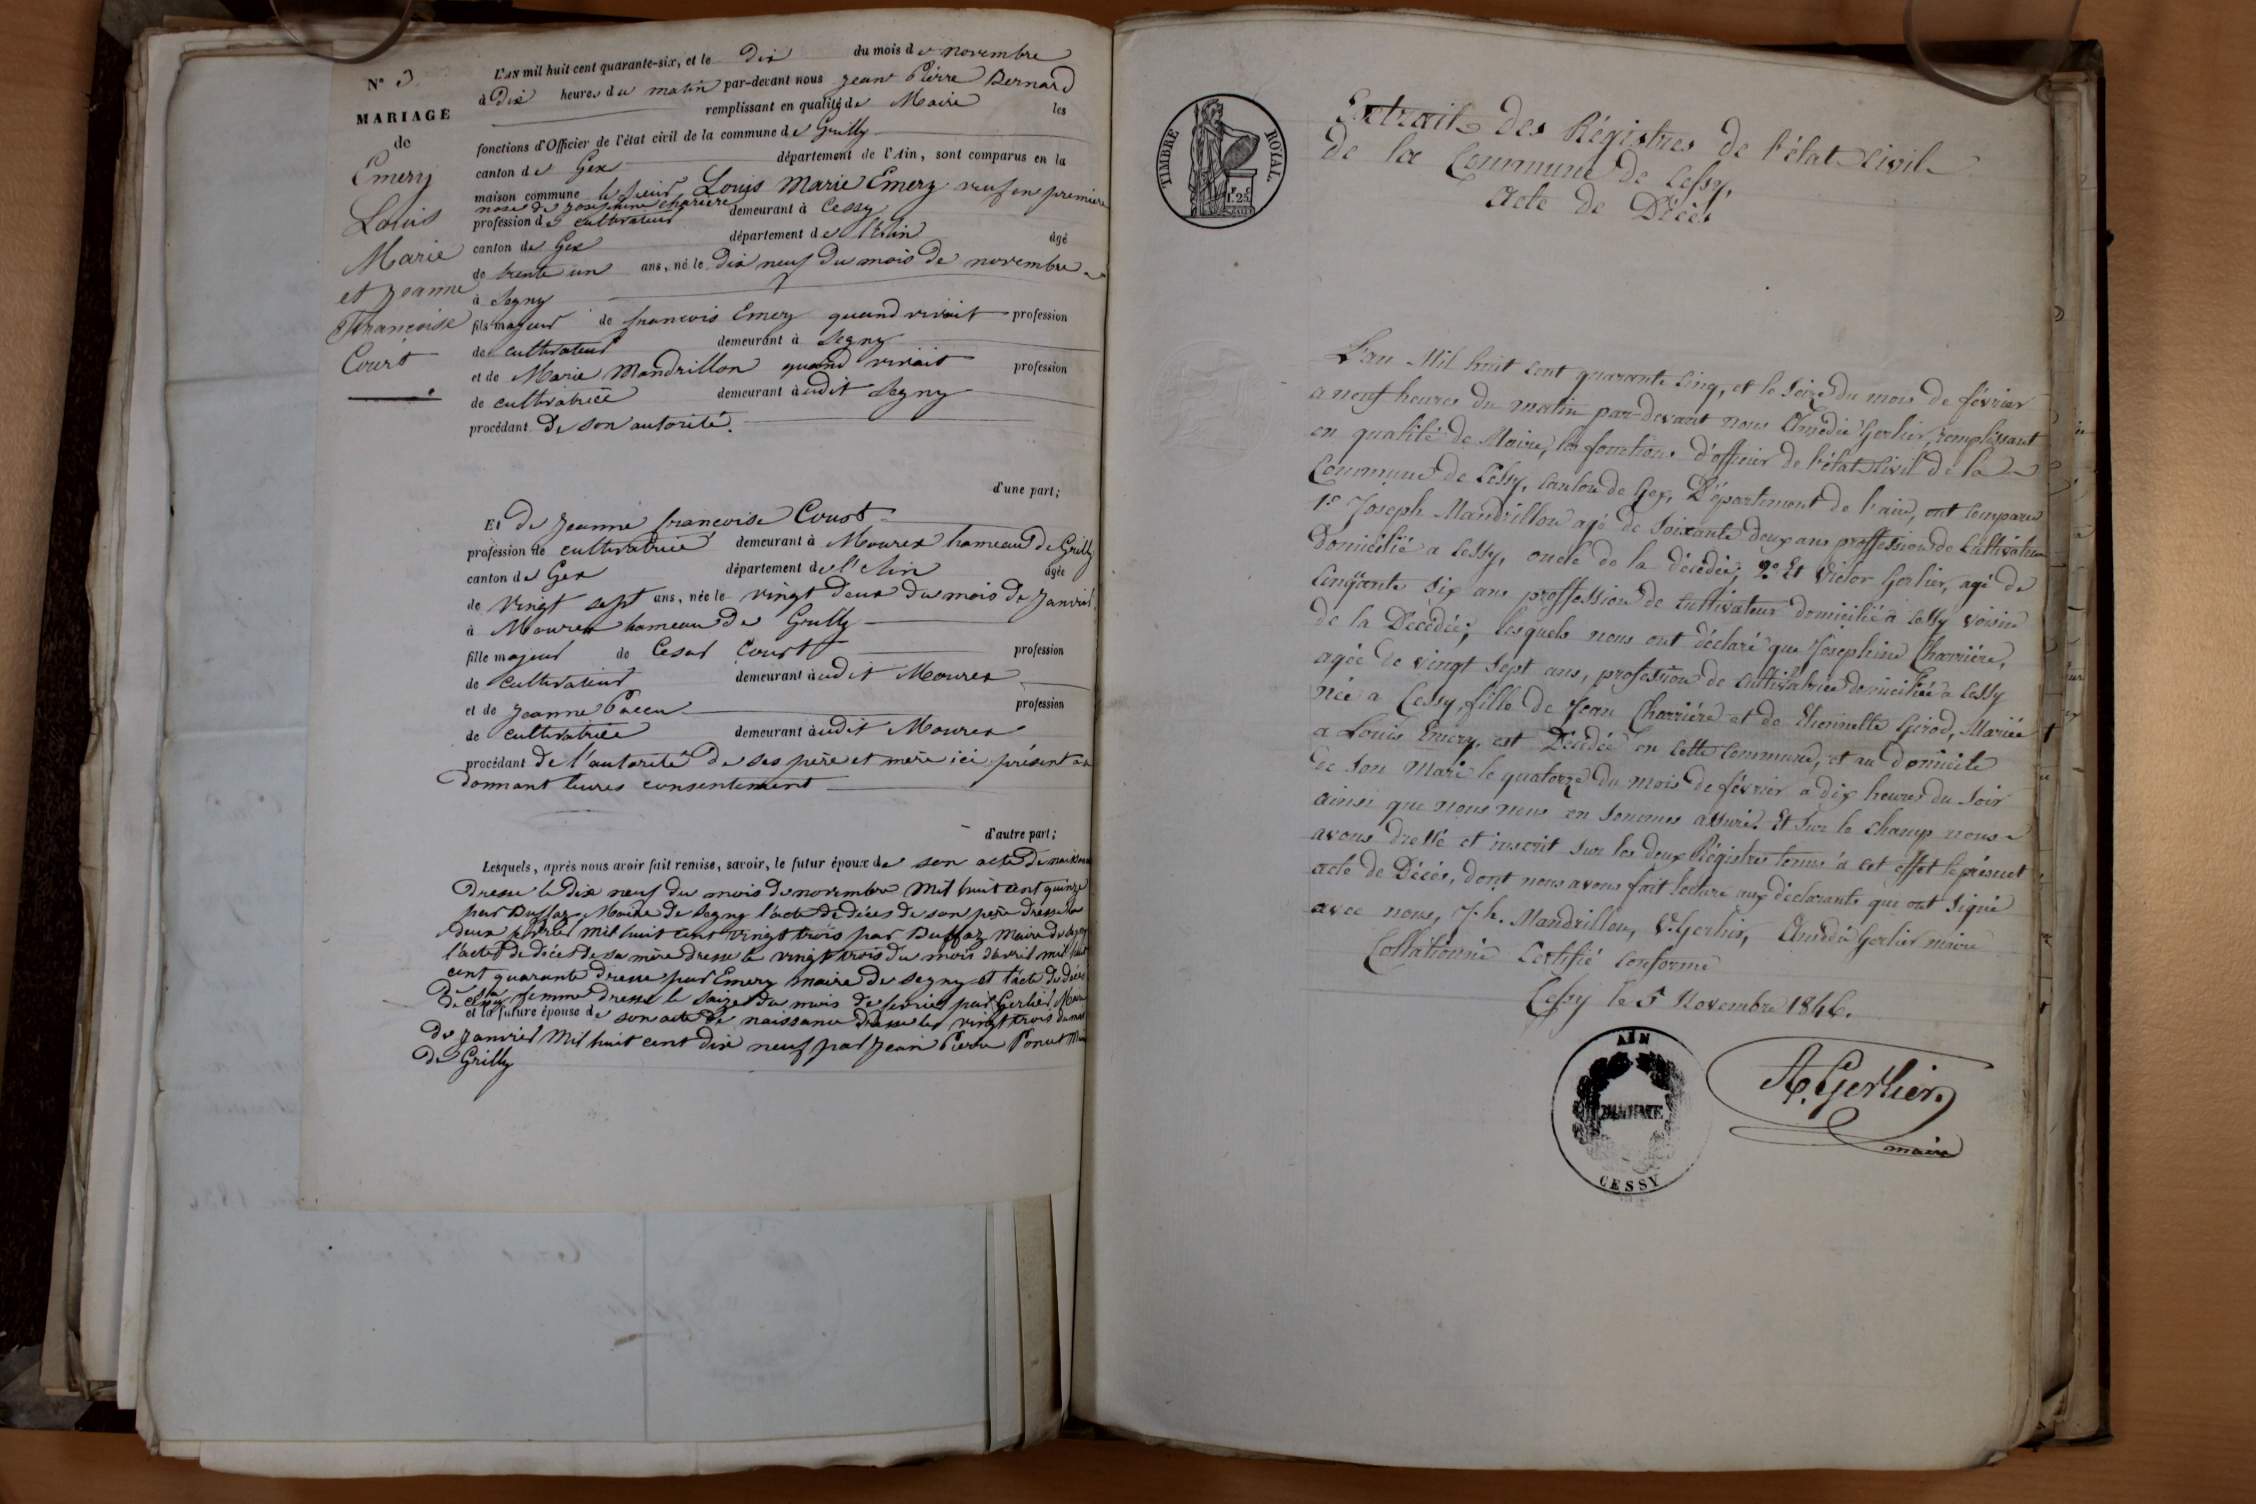 N° 3
MARIAGE
de
Emery
Louis
Marie
et Jeanne
Françoise
Court
L'AN mil huit cent quarante-six, et le dix du mois de novembre
à Dix heures du matin par-devant nous Jean Pierre Bernard
remplissant en qualité de Maire les
fonctions d'Officier de l'état civil de la commune de Grilly
canton de Gex département de l'Ain, sont comparus en la
maison commune le sieur Louis Marie Emery veuf en première
noces de Josephine Charriere
profession de cultivateur demeurant à Cessy
canton de Gex département de l'Ain âgé
de trente un ans, né le dix neuf du mois de novembre
à Segny
fils majeur de françois Emery quand vivait profession
de cultivateur demeurant à Segny
et de Marie Mandrillon quand vivait profession
de cultivatrice demeurant à udit Segny
procédant de son autorité.
d'une part;
Et de Jeanne françoise Court
profession de cultivatrice demeurant à Mourex hameau de Grilly
canton de Gex département de l'Ain âgée
de vingt sept ans, née le vingt deux du mois de Janvier
à Mourex hameau de Grilly
fille majeur de Cesar Court profession
de cultivateur demeurant à udit Mourex
et de Jeanne profession
de cultivatrice demeurant à udit Mourex
procédant de l'autorité de ses père et mère ici présent
donnant leures consentement
d'autre part;
Lesquels, après nous avoir fait remise, savoir, le futur époux de son acte de naissance
Dresse le dix neuf du mois de novembre mil huit cent quinze
par Duffaz Maire de Segny l'acte de déces de son père dresse le
deux mil huit cent vingt trois par Duffaz Maire de Segny
l'acte de déces de sa mère dresse le vingt trois du mois d'avril mil huit
cent quarante dresse par Emery maire de Segny et l'acte de déces
de sa femme dresse le saize du mois de fevrier par Gerlier Maire
de Cessy
et la future épouse de son acte de naissance dresse le vingt trois du mois
de Janvier mil huit cent dix neuf par Jean Pierre Ponet Maire
de Grilly
TIMBRE ROYAL
1.25
Extrait des Régistres de l'état civil
de la Commune de Cessy.
Acte de Décès
L'an Mil huit cent quarante cinq, et le seize du mois de février
a neuf heures du matin par-devant nous Amédée Gerlier, remplissant
en qualité de Maire, les fonctions d'officier de l'état civil de la
Commune de Cessy, canton de Gex, Département de l'ain, ont comparu
1° Joseph Mandrillon agé de soixante deux ans proffession de cultivateur
domicilié a Cessy, oncle de la décédée; 2° Et Victor Gerlier, agé de
cinqüante six ans proffession de cultivateur domicilié a Cessy voisin
de la Décédée; lesquels nous ont déclaré que Josephine Charriére,
agée de vingt sept ans, profession de cultivatrice domiciliée a Cessy
née a Cessy, fille de Jean Charriére et de Etiennette Girod, Mariée
a Louis Emery, est Décédée en cette commune, et au domicile
de son mari le quatorze du mois de février a dix heures du soir
ainsi que nous nous en sommes assuré. Et sur le champ nous
avons dressé et inscrit sur les deux Régistres tenus à cet effet le présent
acte de Décès, dont nous avons fait lecture aux déclarants qui ont signé
avec nous, J.h. Mandrillon, V. Gerlier, Amédée Gerlier maire
Collationné Certifié conforme
Cessy le 5 Novembre 1846.
AIN
MAIRIE
CESSY
A. Gerlier
maire